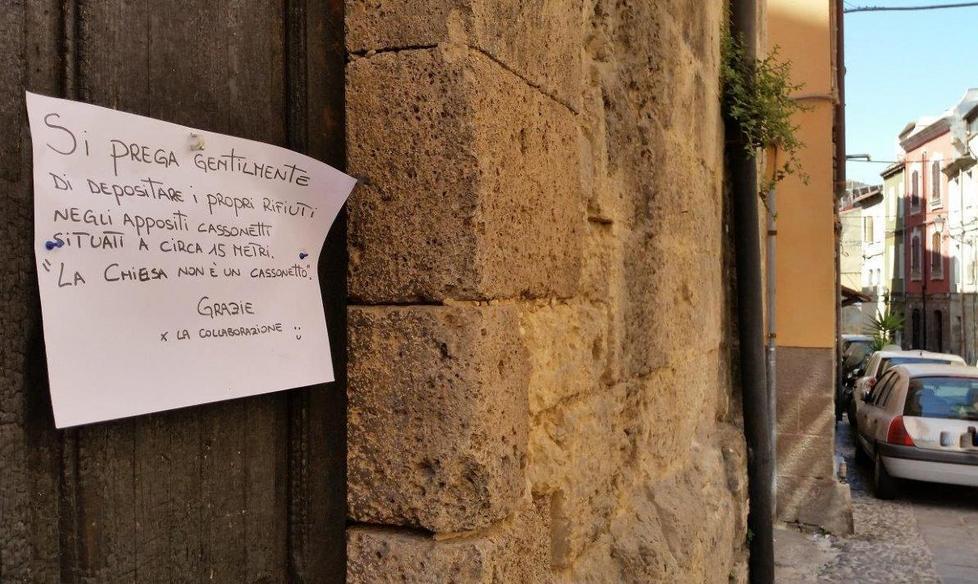 Si PREGA GENTILMENTE
DI DEPOSITARE i PROPRI RIFIUTI
NEGLI APPOSITI CASSONETTI
SITUATI A CIRCA 15 METRI.
"LA CHIESA NON È UN CASSONETTO".
GRAZIE
x LA COLLABORAZIONE :)